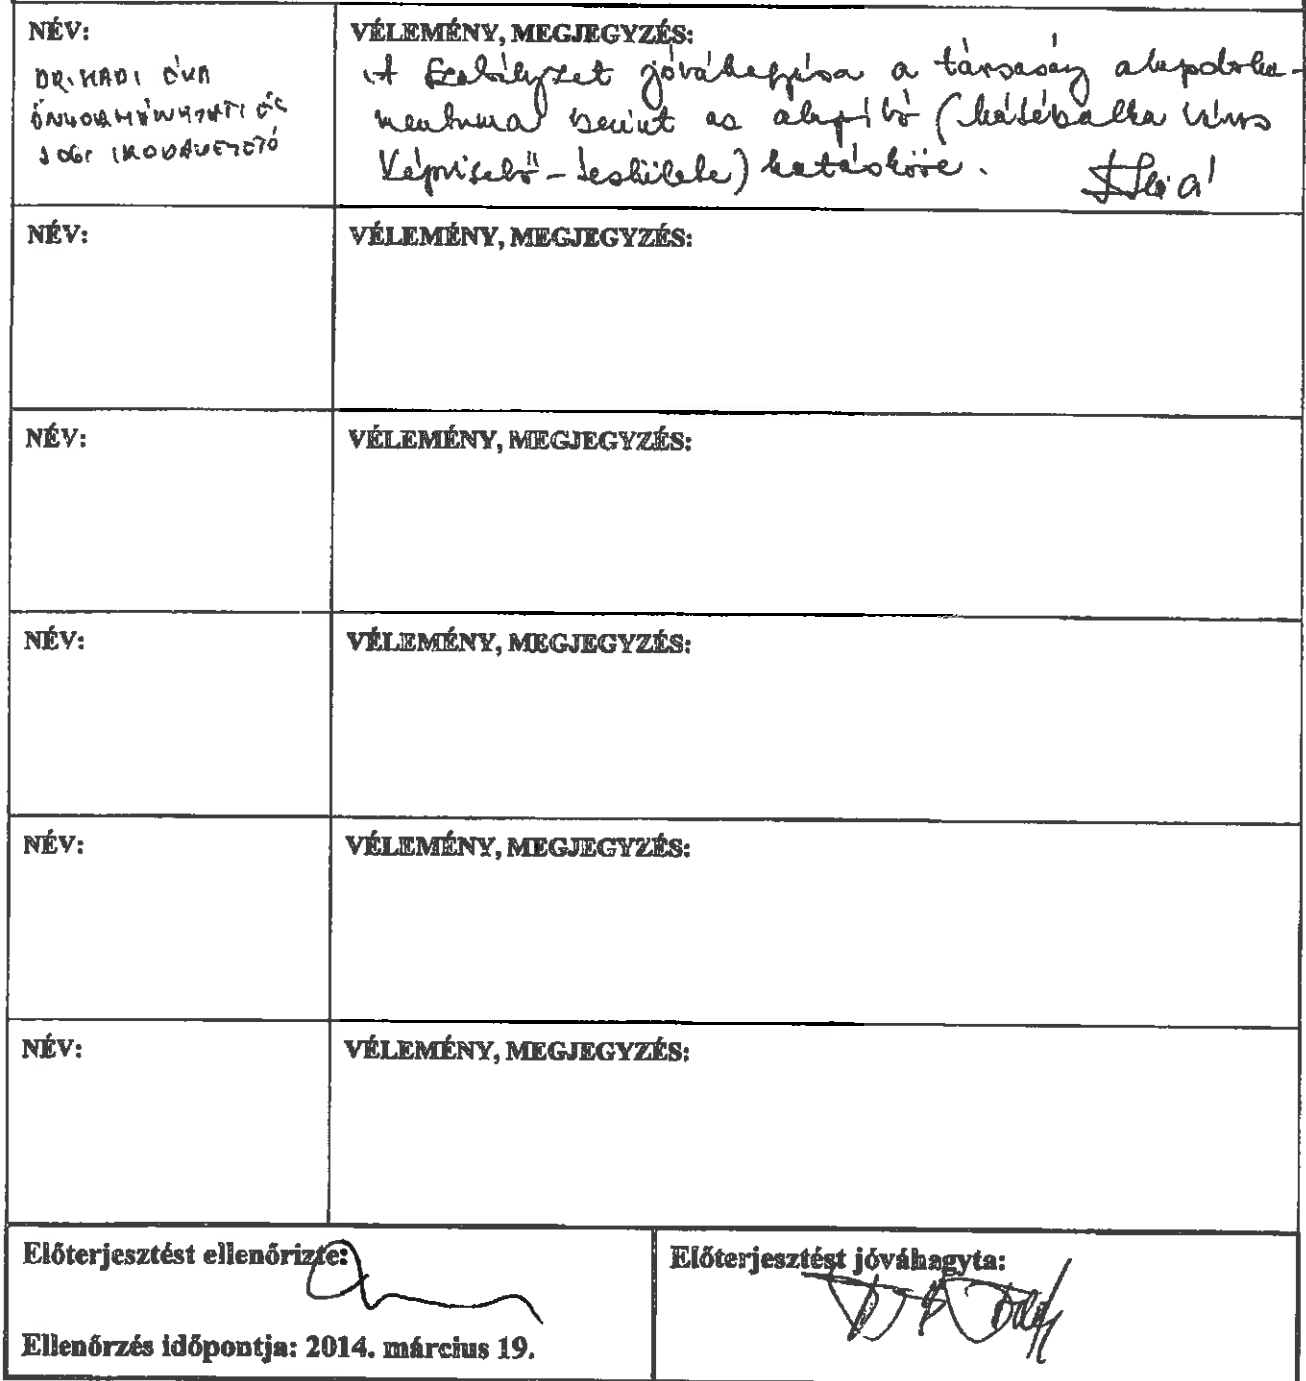 NÉV:
VÉLEMÉNY, MEGJEGYZÉS:
DR. HADI ÉVA
ÖNKORMÁNYZATI ÉS
JOGI IRODAVEZETŐ
A Szabályzat jóváhagyása a társaság alapdoku-
mentuma szerint az alapító (Mátészalka Város
Képviselő-testülete) hatásköre.
NÉV:
VÉLEMÉNY, MEGJEGYZÉS:
NÉV:
VÉLEMÉNY, MEGJEGYZÉS:
NÉV:
VÉLEMÉNY, MEGJEGYZÉS:
NÉV:
VÉLEMÉNY, MEGJEGYZÉS:
NÉV:
VÉLEMÉNY, MEGJEGYZÉS:
Előterjesztést ellenőrizte:
Ellenőrzés időpontja: 2014. március 19.
Előterjesztést jóváhagyta: